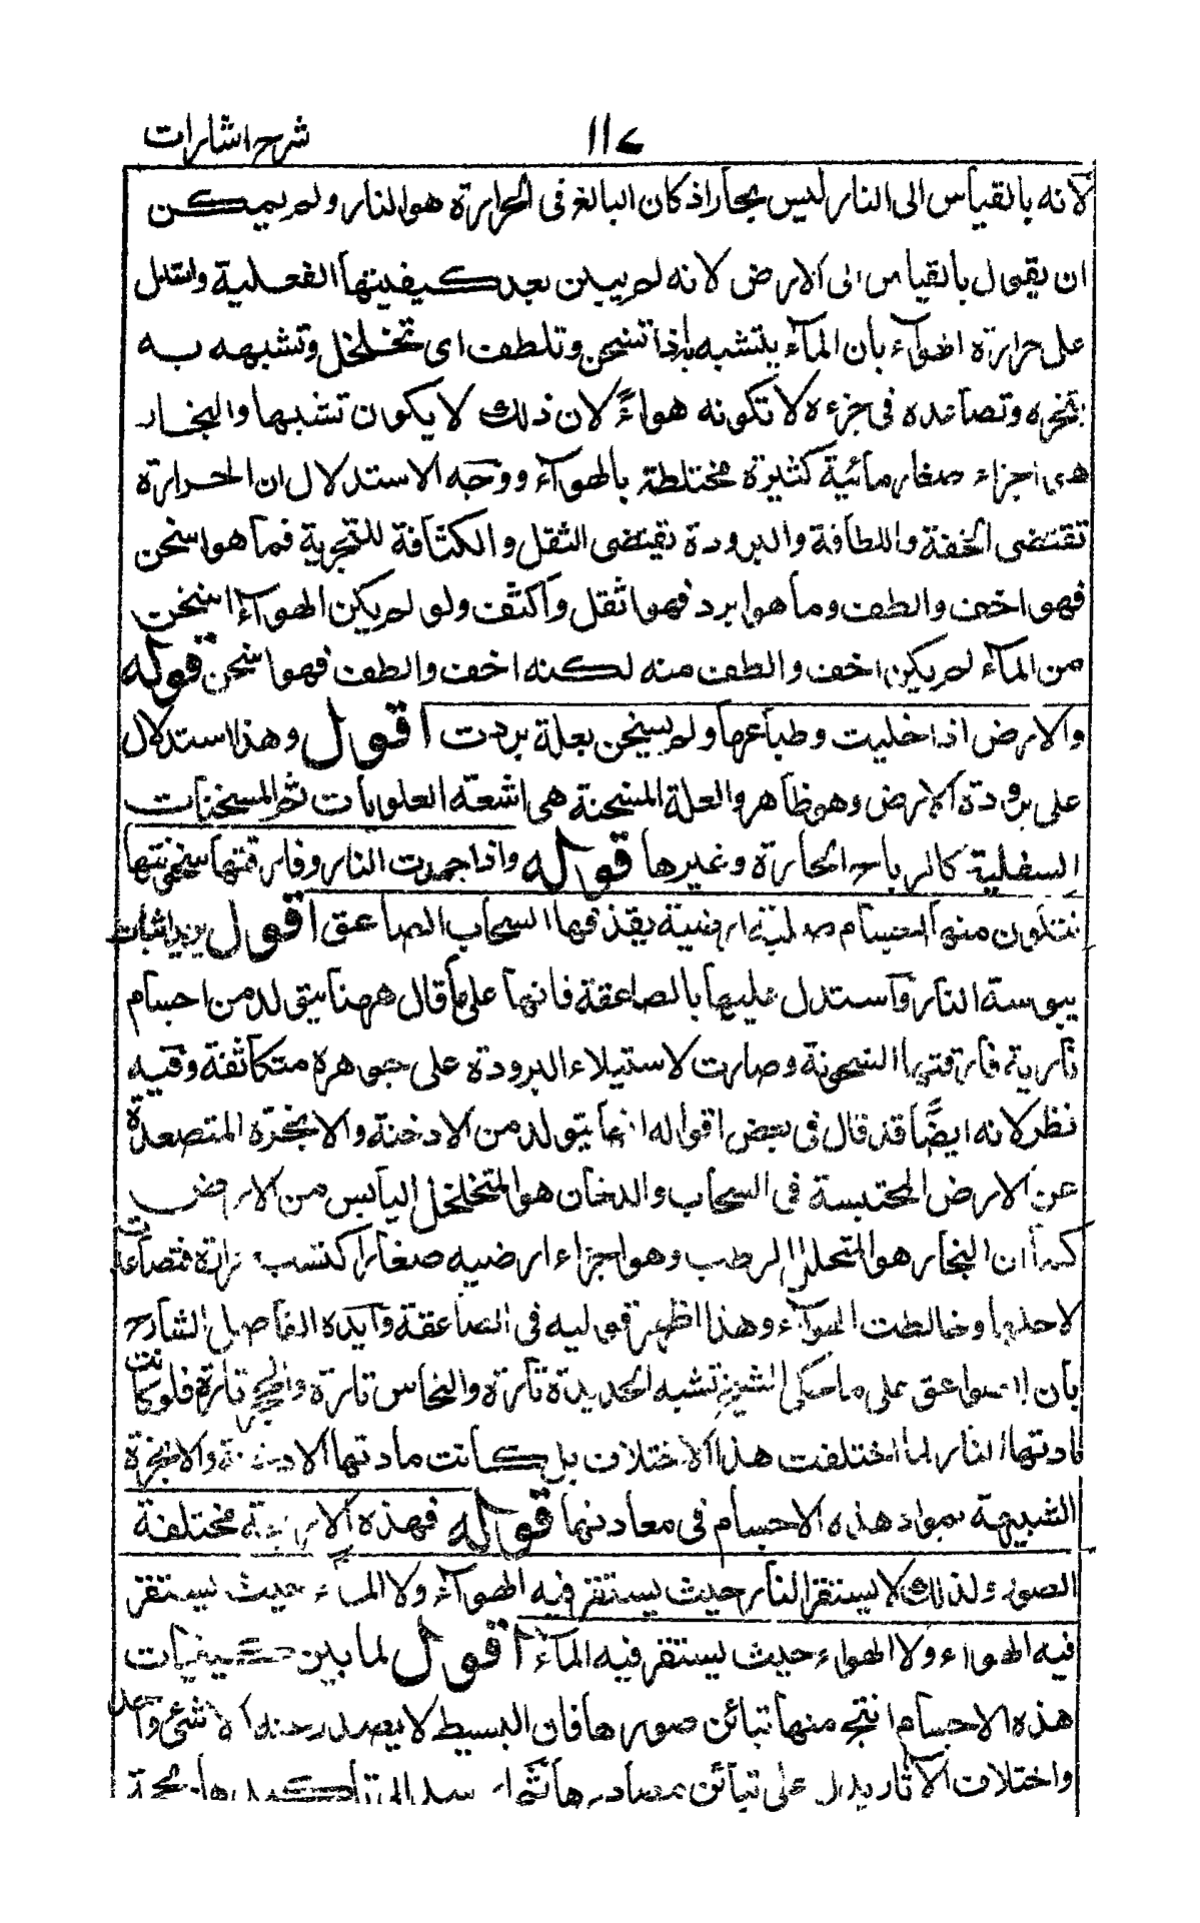 شرح اشارات
١١٧
لانه بالقياس الى النار ليس بحار اذ كان البالغ فى الحرارة هو النار ولم يمكن
ان يقول بالقياس الى الارض لانه لم يبين بعد كيفيتها الفعلية واستدل
على حرارة الهوآء بان المآء يتشبه به اذا تسخن وتلطف اى تخلخل وتشبهه به
تبخره وتصاعده فى جزءه لا تكونه هواءً لان ذلك لا يكون تشبها والبخار
هى اجزاء صغار مائية كثيرة مختلطة بالهوآء ووجه الاستدلال ان الحرارة
تقتضى الخفة واللطافة والبرودة تقتضى الثقل والكثافة للتجربة فما هو اسخن
فهو اخف والطف وما هو ابرد فهو اثقل واكثف ولو لم يكن الهوآء اسخن
من المآء لم يكن اخف والطف منه لكنه اخف والطف فهو اسخن قوله
والارض اذا خليت وطباعها ولم يسخن بعلة بردت اقول وهذا استدلال
على برودة الارض وهو ظاهر والعلة المسخنة هى اشعة العلويات ثم المسخنات
السفلية كالرياح الحارة وغيرها قوله واذا جمدت النار وفارقتها سخونتها
تتكون منها اجسام صلبة ارضية يقذفها السحاب الصاعق اقول يريد اثبات
يبوسة النار وآستدل عليها بالصاعقة فانها على ما قال ههنا يتولد من اجسام
نارية فارقتها السخونة وصارت لاستيلاء البرودة على جوهرة متكاثفة وفيه
نظر لانه ايضًا قد قال فى بعض اقواله انها يتولد من الادخنة والابخرة المتصعدة
عن الارض المحتبسة فى السحاب والدخان هو المتخلخل اليابس من الارض
كما ان البخار هو المتحلل الرطب وهو اجزاء ارضيه صغار اكتسبت حرارة فتصاعدت
لاجلها وخالطت الهوآء وهذا اظهر قوليه فى الصاعقة وآيده الفاضل الشارح
بان الصواعق على ما حكى الشيخ تشبه الحديدة تارة والنحاس تارة والحجر تارة فلو كانت
مادتها النار لما اختلفت هذا الاختلاف بل كانت مادتها الادخنة والابخرة
الشبيهة بمواد هذه الاجسام فى معادنها قوله فهذه الاربعة مختلفة
الصور ولذلك لا يستقر النار حيث يستقر فيه الهوآء ولا المآء حيث يستقر
فيه الهواء ولا الهواء حيث يستقر فيه المآء اقول لما بين كيفيات
هذه الاجسام انتج منها تبائن صورها فان البسيط لا يصدر عنه الا شئ واحد
واختلاف الآثار يدل على تبائن مصادرها ثم